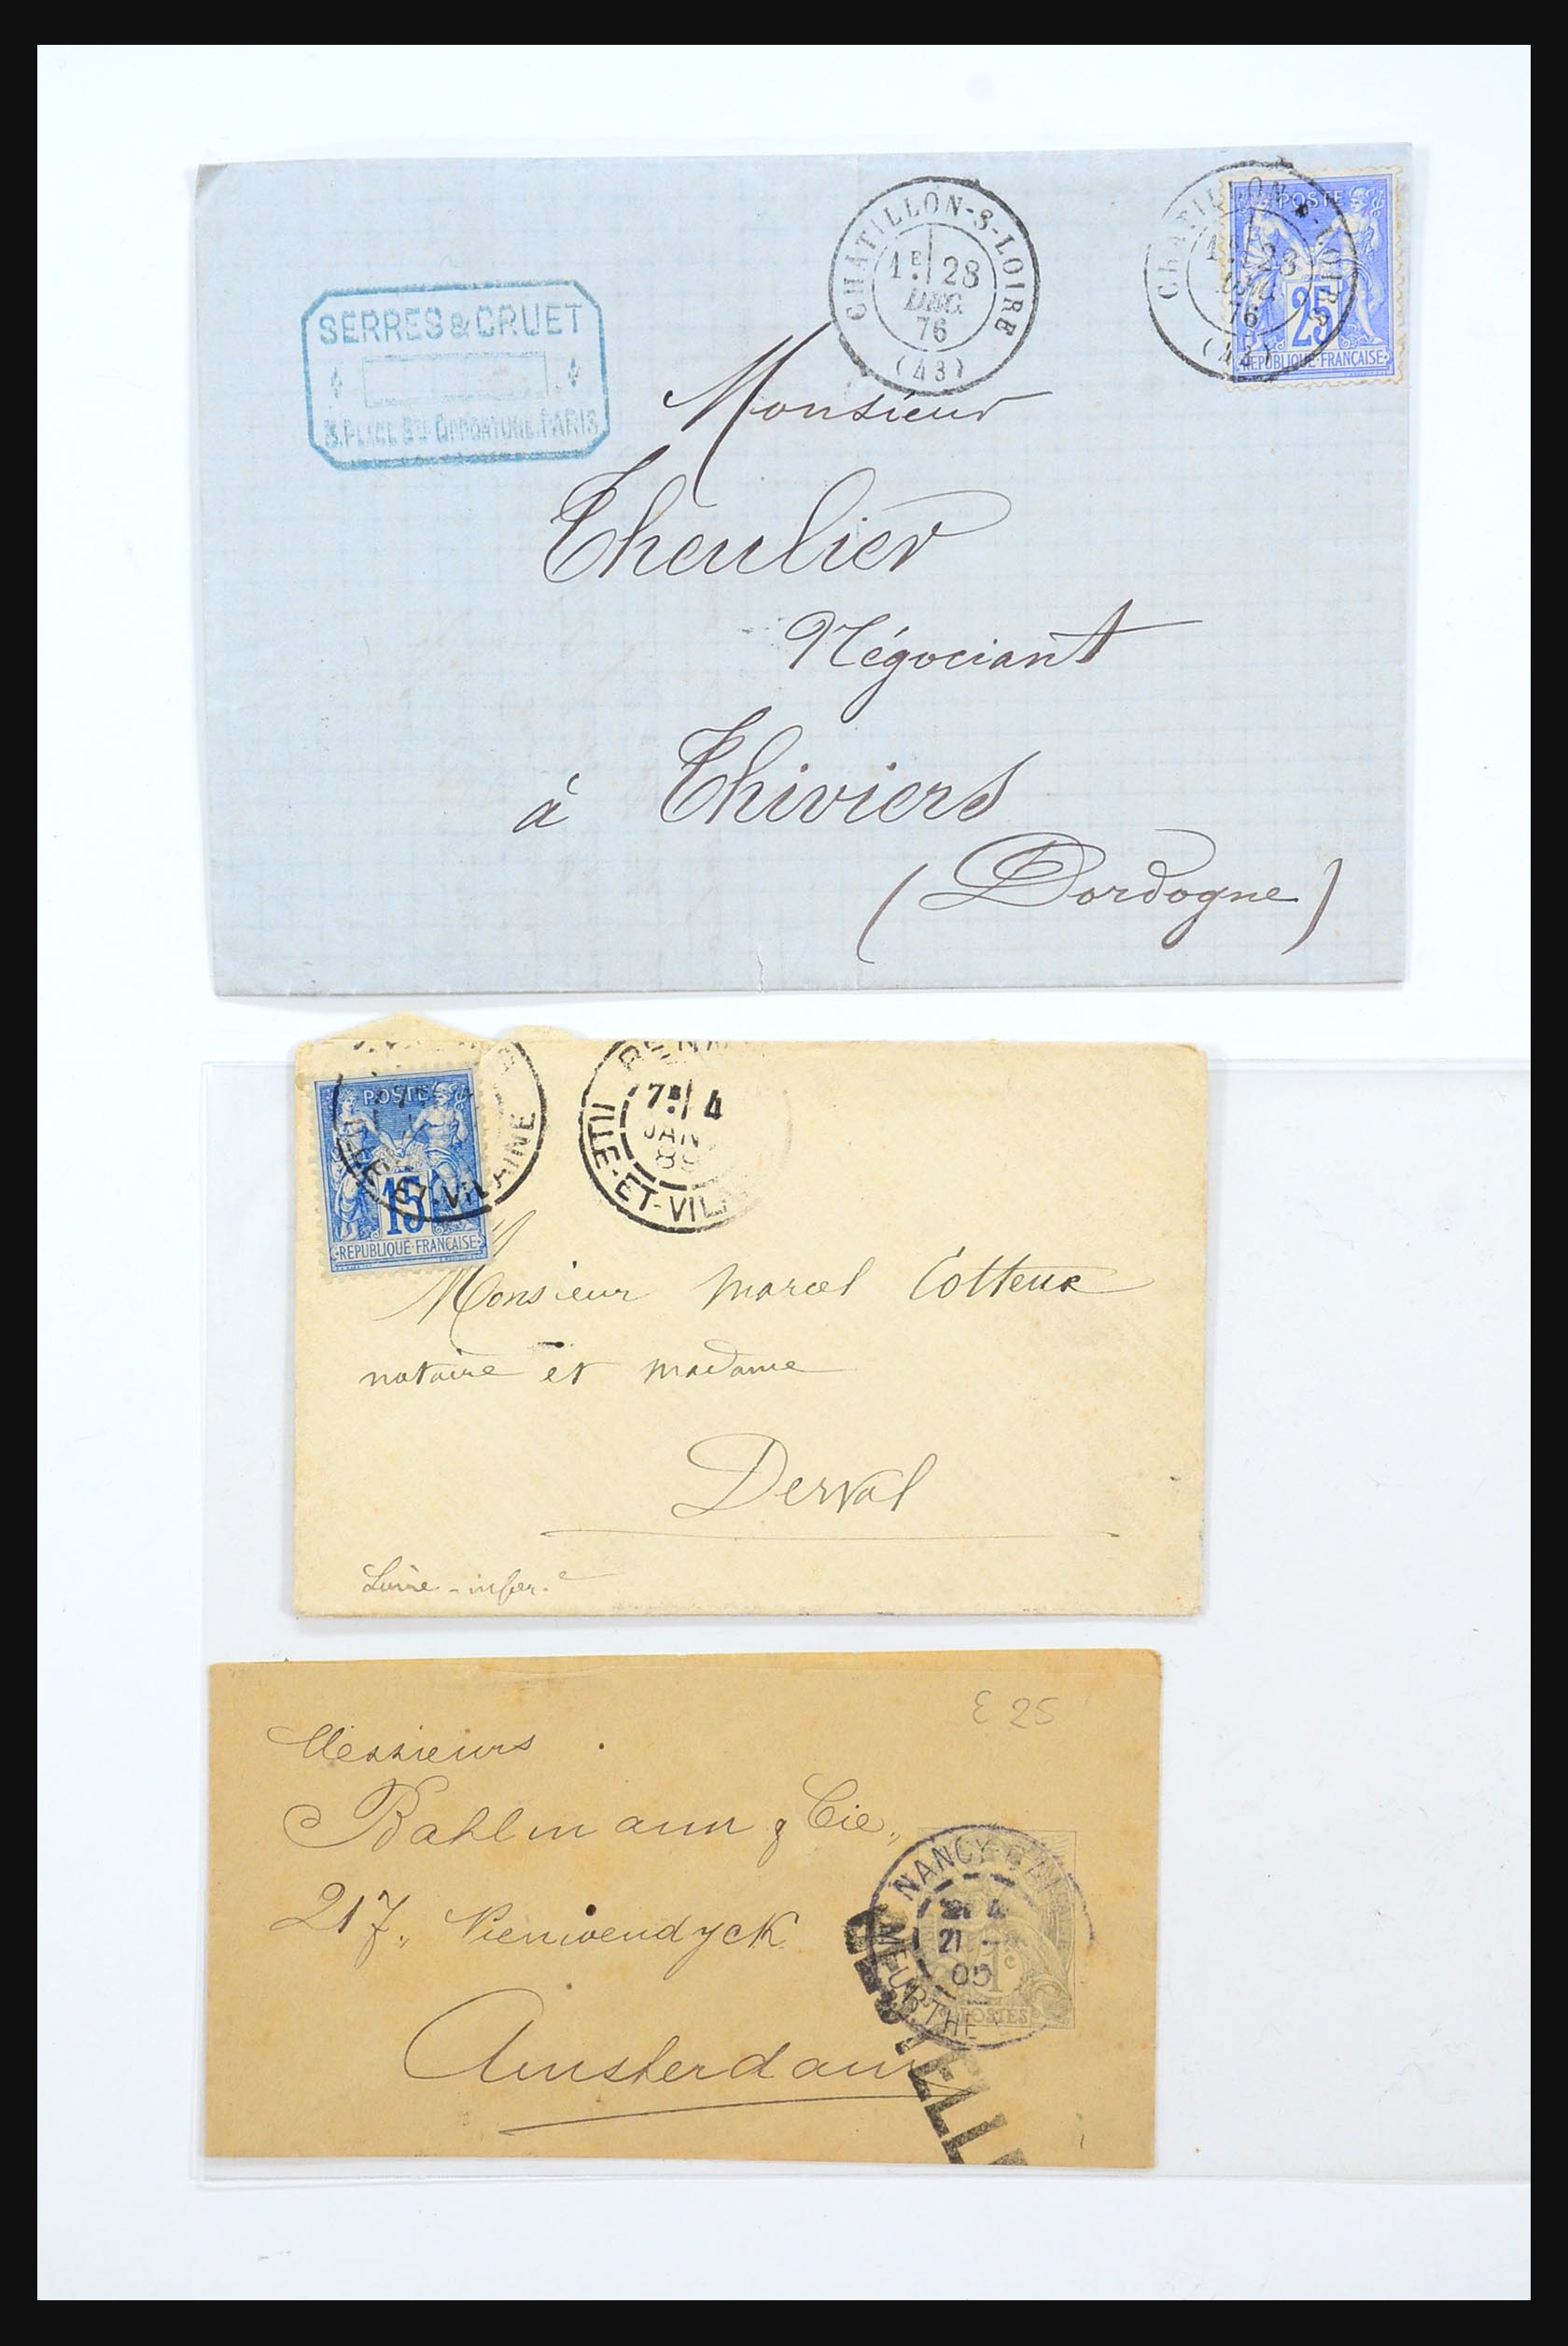 CHATILLON-S-LOIRE
1E 28
DEC.
76
(43)
POSTE
25
REPUBLIQUE FRANÇAISE
28
76
SERRES & CRUET
3. PLACE Ste OPPORTUNE. PARIS
Monsieur
Theulier
Négociant
à Thiviers
(Dordogne)
POSTE
15
REPUBLIQUE FRANÇAISE
ILLE-ET-VILAINE
7E 4
JAN
ILLE-ET-VIL
Monsieur Marcel Cotteux
notaire et madame
Derval
Loire-infer.e
E 25
Messieurs
Bahlmann & Cie.,
217,
NANCY
21
05
MEURTHE
1c
POSTES
Amsterdam